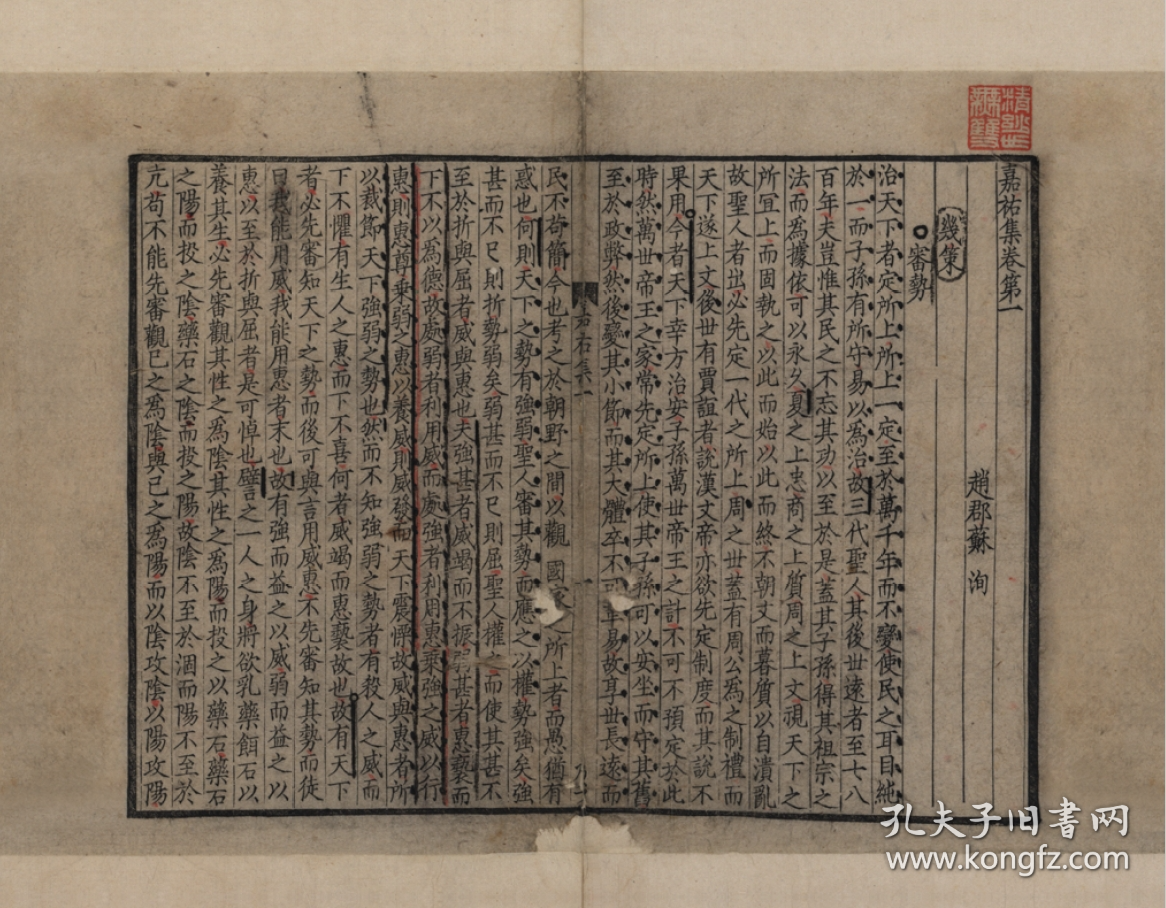 嘉祐集卷第一
趙郡蘇 洵
幾策
審勢
治天下者定所上所上一定至於萬千年而不變使民之耳目純
於一而子孫有所守易以爲治故三代聖人其後世遠者至七八
百年夫豈惟其民之不忘其功以至於是蓋其子孫得其祖宗之
法而爲據依可以永久夏之上忠商之上質周之上文視天下之
所宜上而固執之以此而始以此而終不朝文而暮質以自潰亂
故聖人者出必先定一代之所上周之世蓋有周公爲之制禮而
天下遂上文後世有賈誼者說漢文帝亦欲先定制度而其說不
果用今者天下幸方治安子孫萬世帝王之計不可不預定於此
時然萬世帝王之家常先定所上使其子孫可以安坐而守其舊
至於政弊然後變其小節而其大體卒不可革易故享世長遠而
民不苟簡今也考之於朝野之間以觀 國家之所上者而愚猶有
惑也何則天下之勢有強弱聖人審其勢而應之以權勢強矣強
甚而不已則折勢弱矣弱甚而不已則屈聖人權之而使其甚不
至於折與屈者威與惠也夫強甚者威竭而不振弱甚者惠褻而
下不以爲德故處弱者利用威而處強者利用惠乘強之威以行
惠則惠尊乘弱之惠以養威則威發而天下震慄故威與惠者所
以裁節天下強弱之勢也然而不知強弱之勢者有殺人之威而
下不懼有生人之惠而下不喜何者威竭而惠褻故也故有天下
者必先審知天下之勢而後可與言用威惠不先審知其勢而徒
曰我能用威我能用惠者末也故有強而益之以威弱而益之以
惠以至於折與屈者是可悼也譬之一人之身將欲乳藥餌石以
養其生必先審觀其性之爲陰其性之爲陽而投之以藥石藥石
之陽而投之陰藥石之陰而投之陽故陰不至於涸而陽不至於
亢苟不能先審觀已之爲陰與已之爲陽而以陰攻陰以陽攻陽
孔夫子旧書网
www.kongfz.com